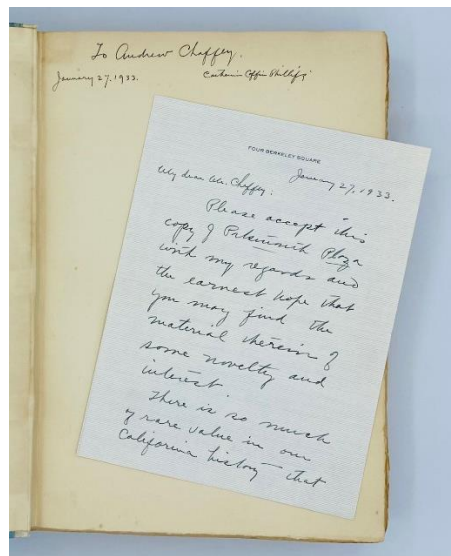 To Andrew Chaffey.
January 27, 1933.
Catherine Coffin Phillips
FOUR BERKELEY SQUARE
January 27, 1933.
My dear Mr. Chaffey:
Please accept this
copy of Portsmouth Plaza
with my regards and
the earnest hope that
you may find the
material therein of
some novelty and
interest.
There is so much
of rare value in our
California history that